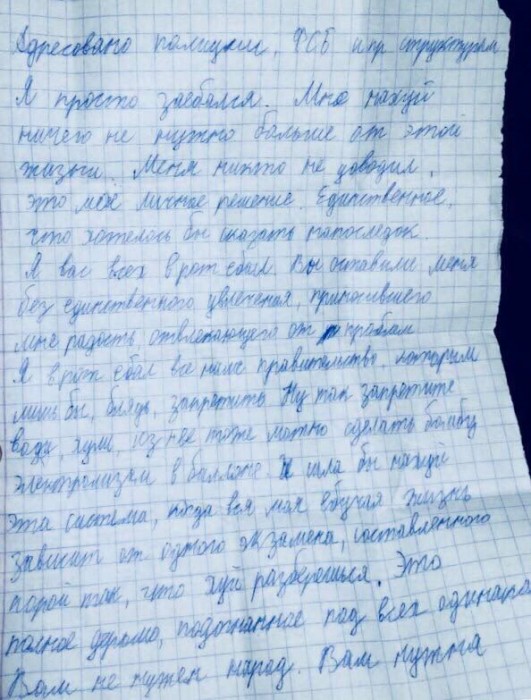 Адресовано полиции, ФСБ и пр структурам
Я просто заебался. Мне нахуй
ничего не нужно больше от этой
жизни. Меня никто не доводил,
это моё личное решение. Единственное,
что хотелось бы сказать напоследок.
Я вас всех в рот ебал. Вы оставили меня
без единственного увлечения, приносившего
мне радость отвлекающего от проблем
Я в рот ебал все наше правительство. которым
лишь бы, блядь, запретить Ну так запретите
воду, хули, из нее тоже можно сделать бомбу
электролизом в баллоне И шла бы нахуй
эта система, когда вся моя ебучая жизнь
зависит от одного экзамена, составленного
порой так, что хуй разберешься. Это
полное дерьмо, подогнанное под всех одинаково
Вам не нужен народ. Вам нужна